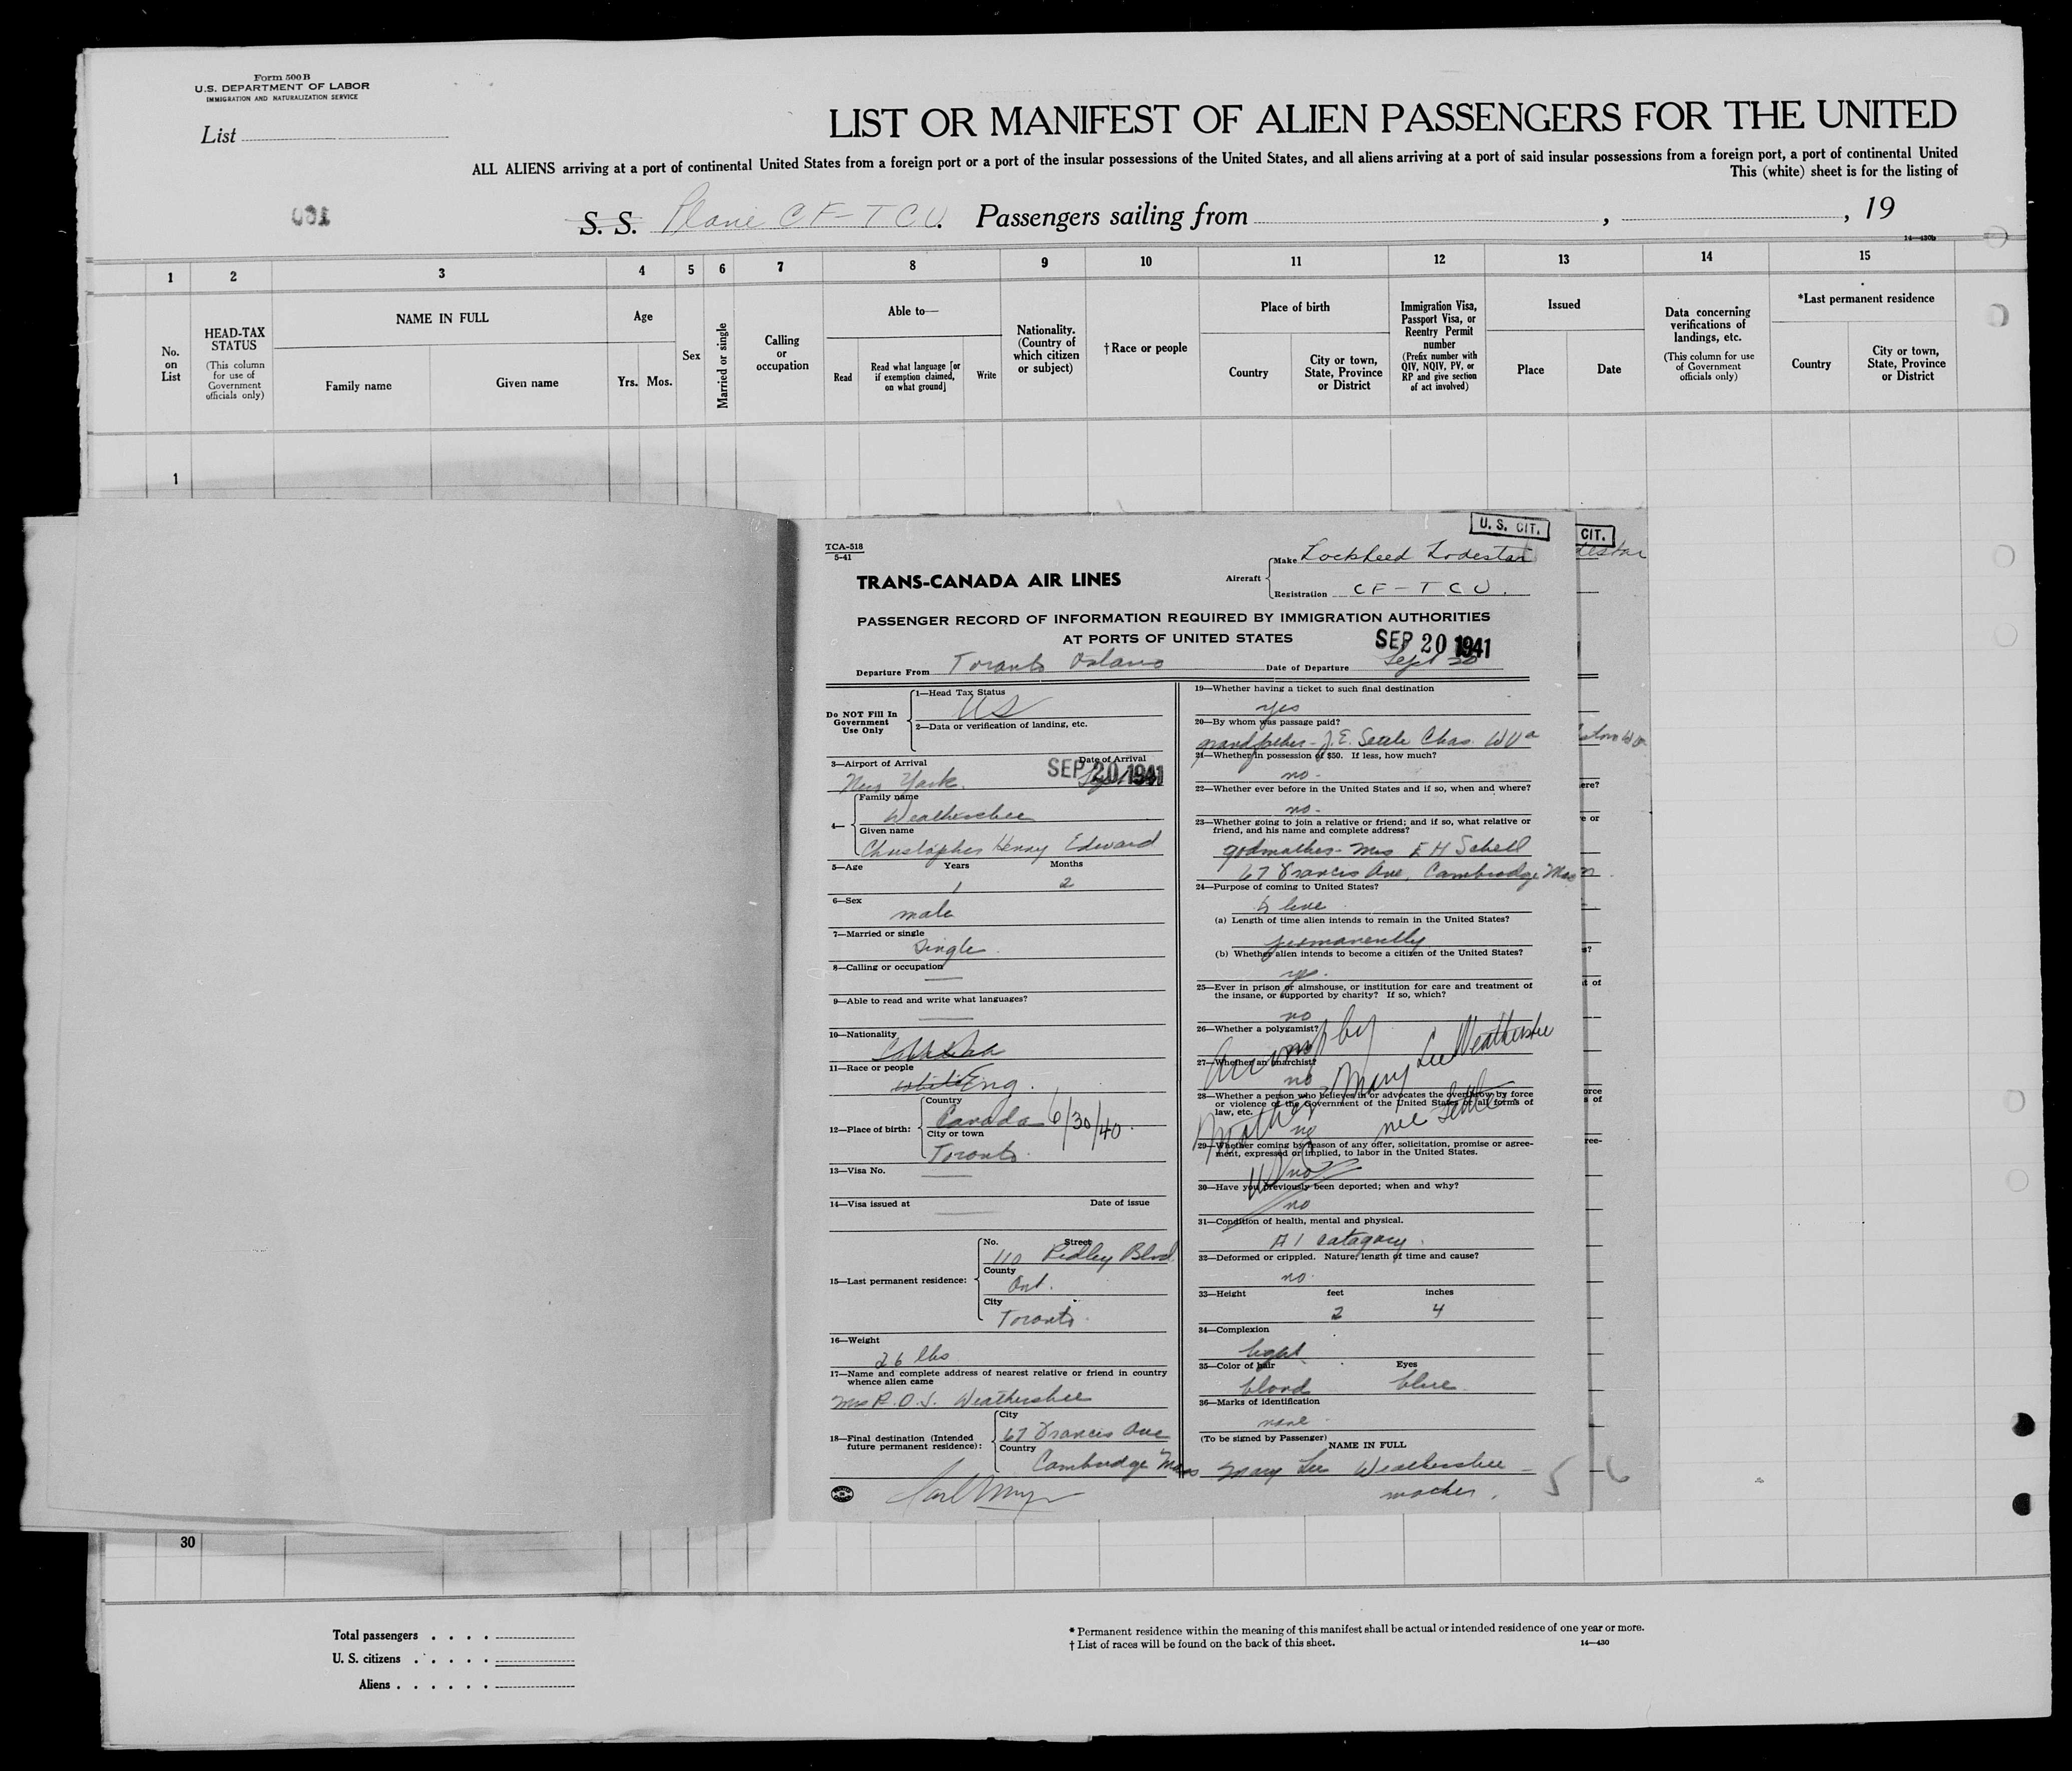 Form 500 B
U.S. DEPARTMENT OF LABOR
IMMIGRATION AND NATURALIZATION SERVICE
List
LIST OR MANIFEST OF ALIEN PASSENGERS FOR THE UNITED
ALL ALIENS arriving at a port of continental United States from a foreign port or a port of the insular possessions of the United States, and all aliens arriving at a port of said insular possessions from a foreign port, a port of continental United
This (white) sheet is for the listing of
S. S. Plane CF-TCU. Passengers sailing from , , 19
14—430b
1 2 3 4 5 6 7 8 9 10 11 12 13 14 15
No. on List
HEAD-TAX STATUS
(This column for use of Government officials only)
NAME IN FULL
Family name
Given name
Age
Yrs. Mos.
Sex
Married or single
Calling or occupation
Able to—
Read
Read what language [or if exemption claimed, on what ground]
Write
Nationality. (Country of which citizen or subject)
† Race or people
Place of birth
Country
City or town, State, Province or District
Immigration Visa, Passport Visa, or Reentry Permit number
(Prefix number with QIV, NQIV, PV, or RP and give section of act involved)
Issued
Place
Date
Data concerning verifications of landings, etc.
(This column for use of Government officials only)
*Last permanent residence
Country
City or town, State, Province or District
1
U. S. CIT.
CIT.
TCA-518
5-41
TRANS-CANADA AIR LINES
Aircraft
Make Lockheed Lodestar
Registration CF-TCU.
PASSENGER RECORD OF INFORMATION REQUIRED BY IMMIGRATION AUTHORITIES
AT PORTS OF UNITED STATES
SEP 20 1941
Departure From Toronto Ontario
Date of Departure Sept 20
Do NOT Fill In Government Use Only
1—Head Tax Status
US
2—Data or verification of landing, etc.
3—Airport of Arrival
Date of Arrival
New York.
SEP 20 1941
4—
Family name
Weathersbee
Given name
Christopher Henry Edward
5—Age Years Months
1 2
6—Sex
male
7—Married or single
Single
8—Calling or occupation
9—Able to read and write what languages?
10—Nationality
Canada
11—Race or people
white Eng.
12—Place of birth:
Country
Canada 6/30/40.
City or town
Toronto.
13—Visa No.
14—Visa issued at Date of issue
15—Last permanent residence:
No. Street
110 Ridley Blvd
County
Ont.
City
Toronto.
16—Weight
26 lbs
17—Name and complete address of nearest relative or friend in country whence alien came
Mrs R. O. J. Weathersbee
18—Final destination (Intended future permanent residence):
City
67 Francis Ave
Country
Cambridge Mass
19—Whether having a ticket to such final destination
yes
20—By whom was passage paid?
grandfather - J. E. Settle Chas. W Va
21—Whether in possession of $50. If less, how much?
no -
22—Whether ever before in the United States and if so, when and where?
no -
23—Whether going to join a relative or friend; and if so, what relative or friend, and his name and complete address?
godmother - Mrs E H Schell
67 Francis Ave, Cambridge Mass
24—Purpose of coming to United States?
to live
(a) Length of time alien intends to remain in the United States?
permanently
(b) Whether alien intends to become a citizen of the United States?
yes.
25—Ever in prison or almshouse, or institution for care and treatment of the insane, or supported by charity? If so, which?
no
26—Whether a polygamist?
no
27—Whether an anarchist?
no
28—Whether a person who believes in or advocates the overthrow by force or violence of the Government of the United States or all forms of law, etc.
no
29—Whether coming by reason of any offer, solicitation, promise or agreement, expressed or implied, to labor in the United States.
no
Accomp by
Mother Mary Lee Weathersbee
nee Settle
US
30—Have you previously been deported; when and why?
no
31—Condition of health, mental and physical.
A 1 catagory.
32—Deformed or crippled. Nature, length of time and cause?
no.
33—Height feet inches
2 4
34—Complexion
light
35—Color of hair Eyes
blond blue
36—Marks of identification
none
(To be signed by Passenger)
NAME IN FULL
Mary Lee Weathersbee -
mother.
5
6
30
Total passengers
U. S. citizens
Aliens
* Permanent residence within the meaning of this manifest shall be actual or intended residence of one year or more.
† List of races will be found on the back of this sheet.
14—430